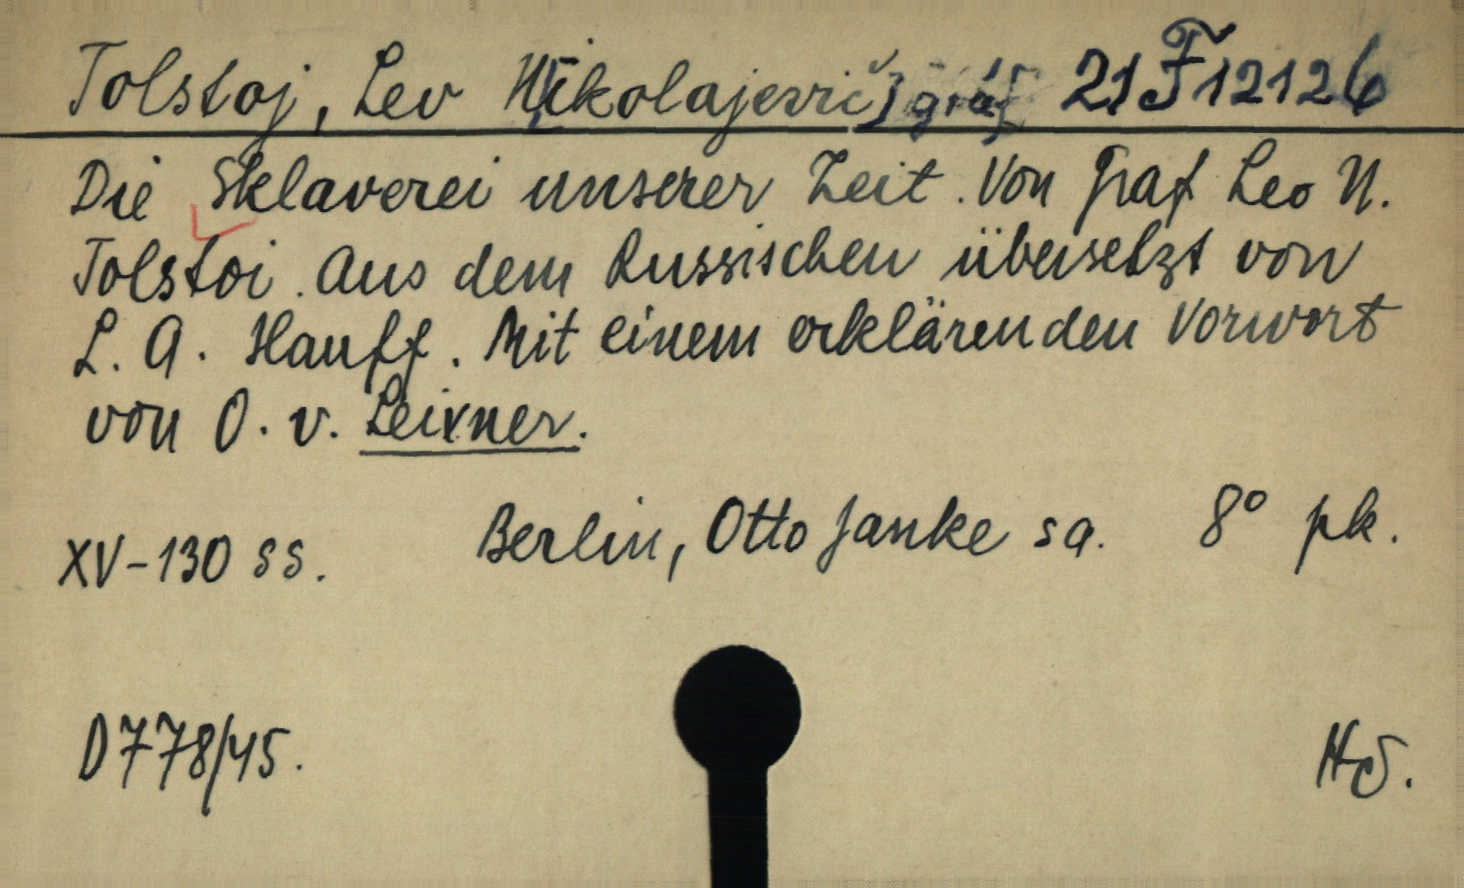 Tolstoj, Lev Nikolajevič] graf 21 F 12126
Die Sklaverei unserer Zeit. Von Graf Leo N.
Tolstoi. Aus dem Russischen übersetzt von
L. A. Hauff. Mit einem erklärenden Vorwort
von O. v. Leixner.
XV-130 ss. Berlin, Otto Janke sa. 8° pk.
D778/45. HS.